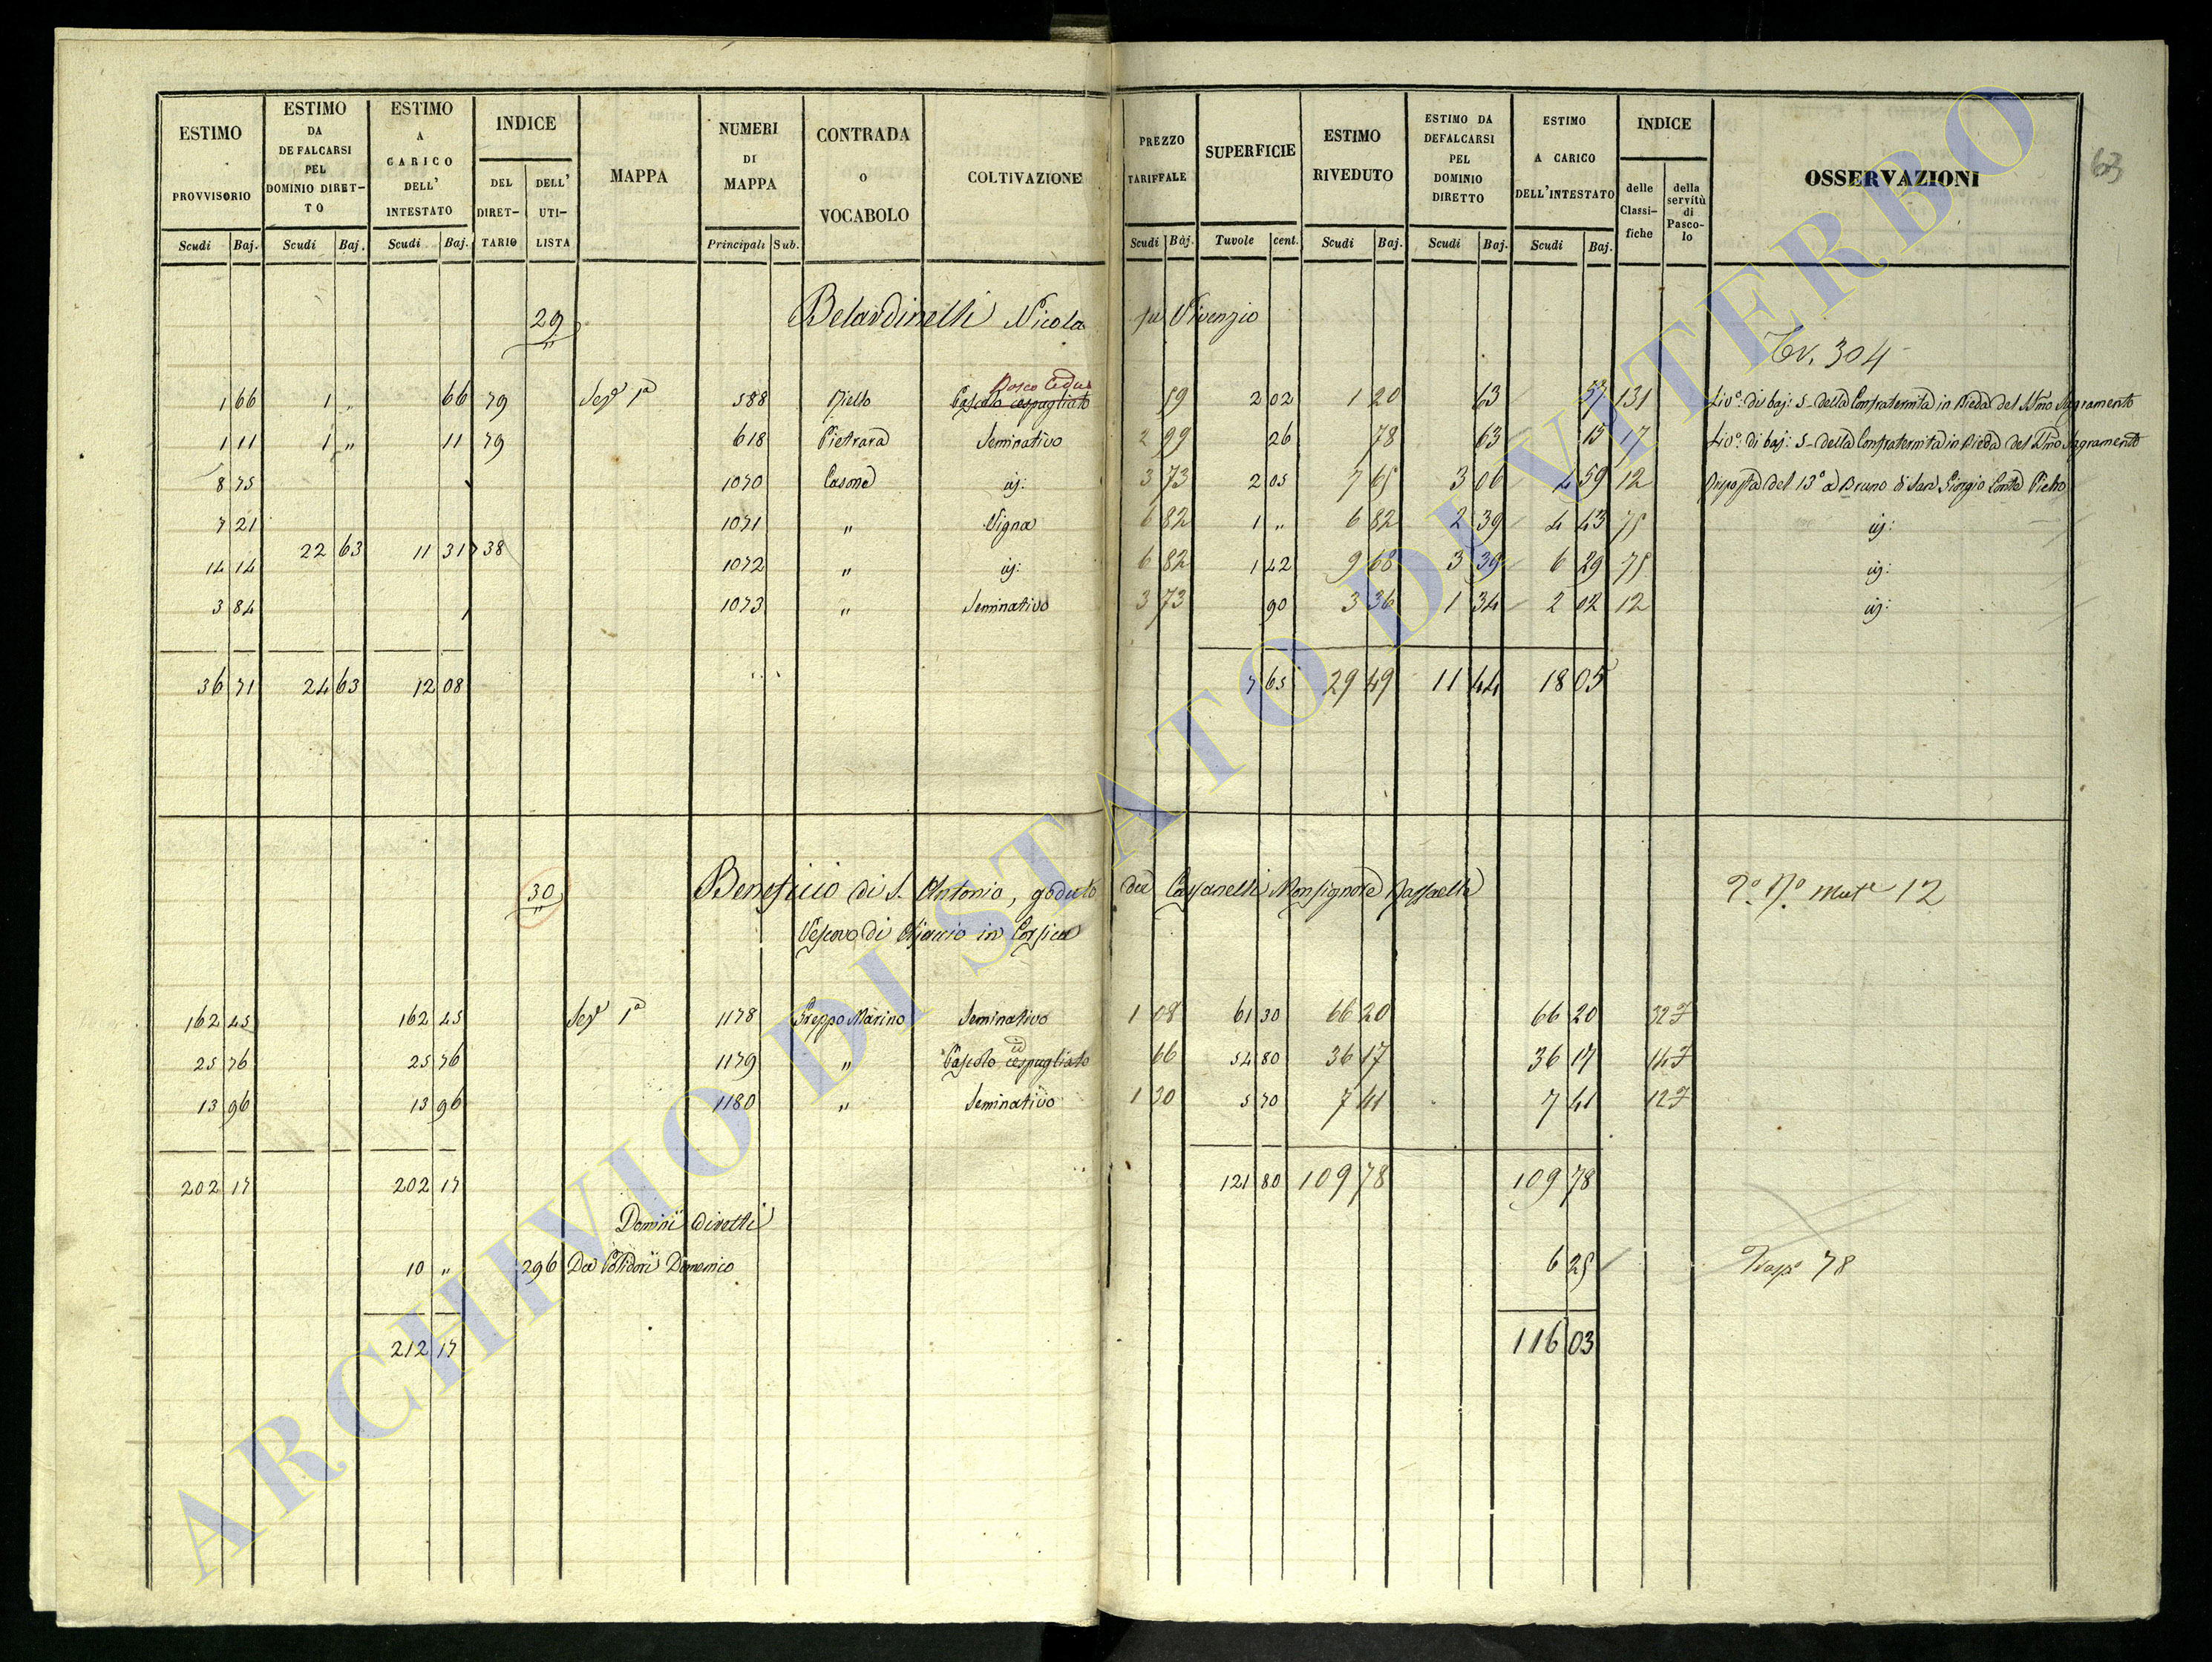 ESTIMO PROVVISORIO Scudi Baj.
ESTIMO DA DEFALCARSI PEL DOMINIO DIRETTO Scudi Baj.
ESTIMO A CARICO DELL' INTESTATO Scudi Baj.
INDICE DEL DIRETTARIO DELL' UTILISTA
MAPPA
NUMERI DI MAPPA Principali Sub.
CONTRADA o VOCABOLO
COLTIVAZIONE
PREZZO TARIFFALE Scudi Baj.
SUPERFICIE Tuvole cent.
ESTIMO RIVEDUTO Scudi Baj.
ESTIMO DA DEFALCARSI PEL DOMINIO DIRETTO Scudi Baj.
ESTIMO A CARICO DELL'INTESTATO Scudi Baj.
INDICE delle Classifiche della servitù di Pascolo
OSSERVAZIONI
63
29 Belardinelli Nicola fu Vivenzio
304
Bosco Ceduo
1 66 1 " 66 79 Sez. 1a 588 Riello Pascolo cespugliato 59 2 02 1 20 63 57 131 Liv.o di baj: 5 della Confraternita in Bieda del SSmo Sagramento
1 11 1 " 11 79 618 Pietrara Seminativo 2 99 26 78 63 15 17 Liv.o di baj: 5 della Confraternita in Bieda del SSmo Sagramento
8 75 1070 Casone id: 3 73 2 05 7 65 3 06 4 59 12 Risposta del 13.o a Bruno di San Giorgio Conte Pietro
7 21 1071 " Vigna 6 82 1 " 6 82 2 39 4 43 75 id:
22 63 11 31 738
14 14 1072 " id: 6 82 1 42 9 68 3 39 6 29 75 id:
3 84 1073 " Seminativo 3 73 90 3 36 1 34 2 02 12 id:
36 71 24 63 12 08 7 65 29 49 11 44 18 05
30 Beneficio di S. Antonio, goduto da Casanelli Monsignore Raffaelle
Vescovo di Ajaccio in Corsica
12
162 45 162 45 Sez. 1a 1178 Greppo Marino Seminativo 1 08 61 30 66 20 66 20 32
25 76 25 76 1179 " Pascolo cespugliato 66 54 80 36 17 36 17 14
13 96 13 96 1180 " Seminativo 1 30 5 70 7 41 7 41 12
202 17 202 17 121 80 109 78 109 78
Domini diretti
10 " 296 Da Polidori Domenico 6 25 78
212 17 116 03
ARCHIVIO DI STATO DI VITERBO